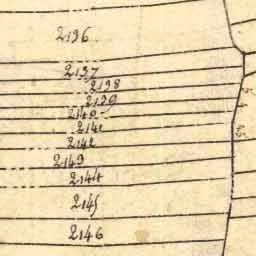 2136
2137
2138
2139
2140
2141
2142
2143
2144
2145
2146